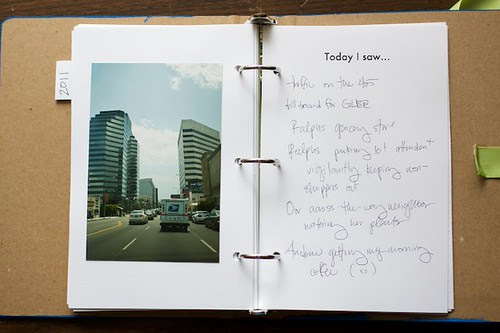 2011
Today I saw...
traffic on the 405
billboard for GLEE
Ralphs grocery store
Ralphs parking lot attendant
vigilantly keeping non-
shoppers out
Our across-the-way neighbor
watering her plants
Andrew getting my morning
coffee (xo)